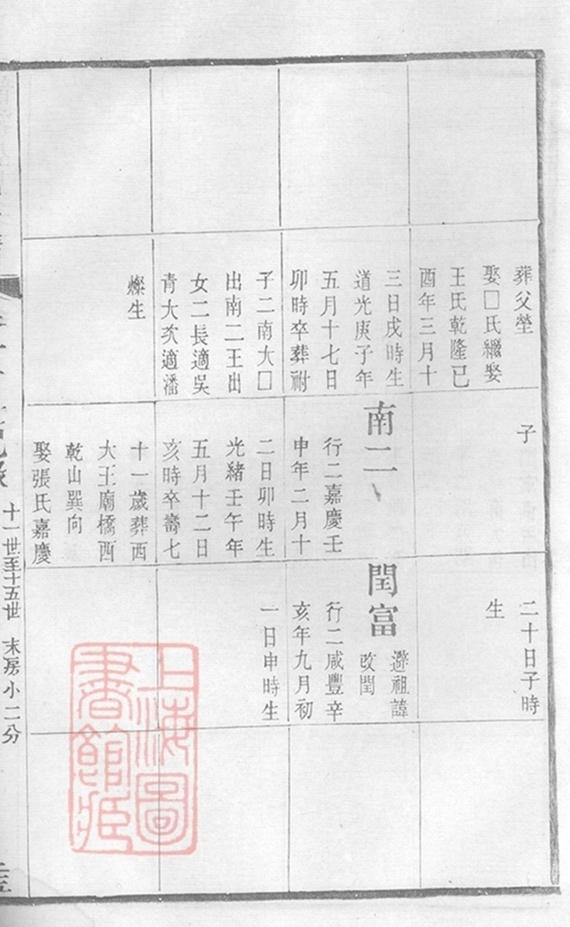 葬父塋
娶□氏繼娶
王氏乾隆己
酉年三月十
三日戌時生
道光庚子年
五月十七日
卯時卒葬祔
子二南大□
出南二王出
女二長適吳
青大次適潘
燦生
子
南二
行二嘉慶壬
申年二月十
二日卯時生
光緒壬午年
五月十二日
亥時卒壽七
十一歲葬西
大王廟橋西
乾山巽向
娶張氏嘉慶
二十日子時
生
閏富
避祖諱
改閏
行二咸豐辛
亥年九月初
一日申時生
十一世至十五世 末房小二分
上海圖
書館藏